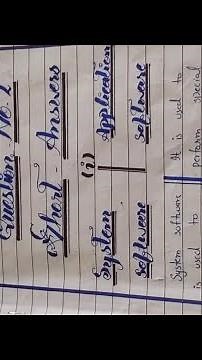 Question No. 2
Short Answers
(i)
System Application
Software Software
System software It is used to
is used to perform special